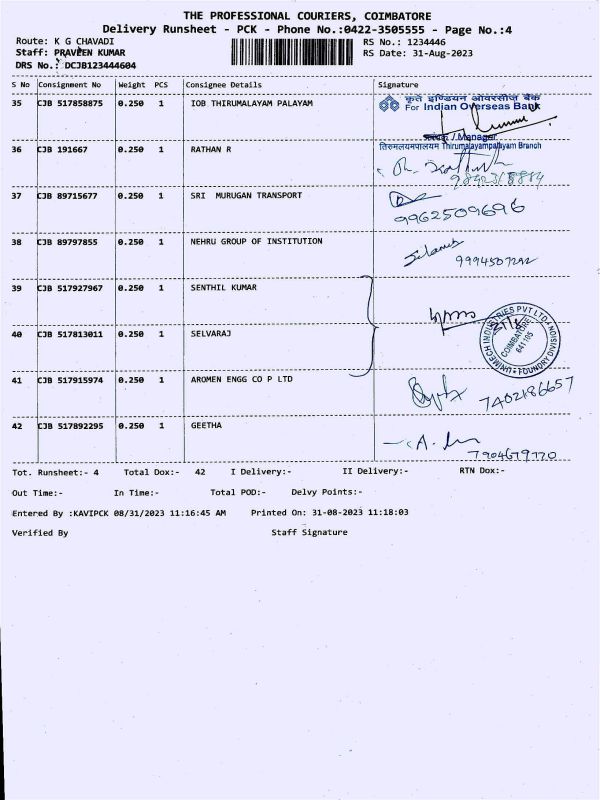 THE PROFESSIONAL COURIERS, COIMBATORE
Delivery Runsheet - PCK - Phone No.:0422-3505555 - Page No.:4
Route: K G CHAVADI RS No.: 1234446
Staff: PRAVEEN KUMAR RS Date: 31-Aug-2023
DRS No.: DCJB123444604
S No Consignment No Weight PCS Consignee Details Signature
35 CJB 517858875 0.250 1 IOB THIRUMALAYAM PALAYAM
कृते इण्डियन ओवरसीज बैंक
For Indian Overseas Bank
प्रबंधक / Manager
तिरुमलयमपालयम Thirumalayampalayam Branch
36 CJB 191667 0.250 1 RATHAN R
37 CJB 89715677 0.250 1 SRI MURUGAN TRANSPORT
9962509696
38 CJB 89797855 0.250 1 NEHRU GROUP OF INSTITUTION
39 CJB 517927967 0.250 1 SENTHIL KUMAR
UNIMECH INDUSTRIES PVT LTD
COIMBATORE
641 105
FOUNDRY DIVISION
40 CJB 517813011 0.250 1 SELVARAJ
41 CJB 517915974 0.250 1 AROMEN ENGG CO P LTD
7402186657
42 CJB 517892295 0.250 1 GEETHA
7904679770
Tot. Runsheet:- 4 Total Dox:- 42 I Delivery:- II Delivery:- RTN Dox:-
Out Time:- In Time:- Total POD:- Delvy Points:-
Entered By :KAVIPCK 08/31/2023 11:16:45 AM Printed On: 31-08-2023 11:18:03
Verified By Staff Signature